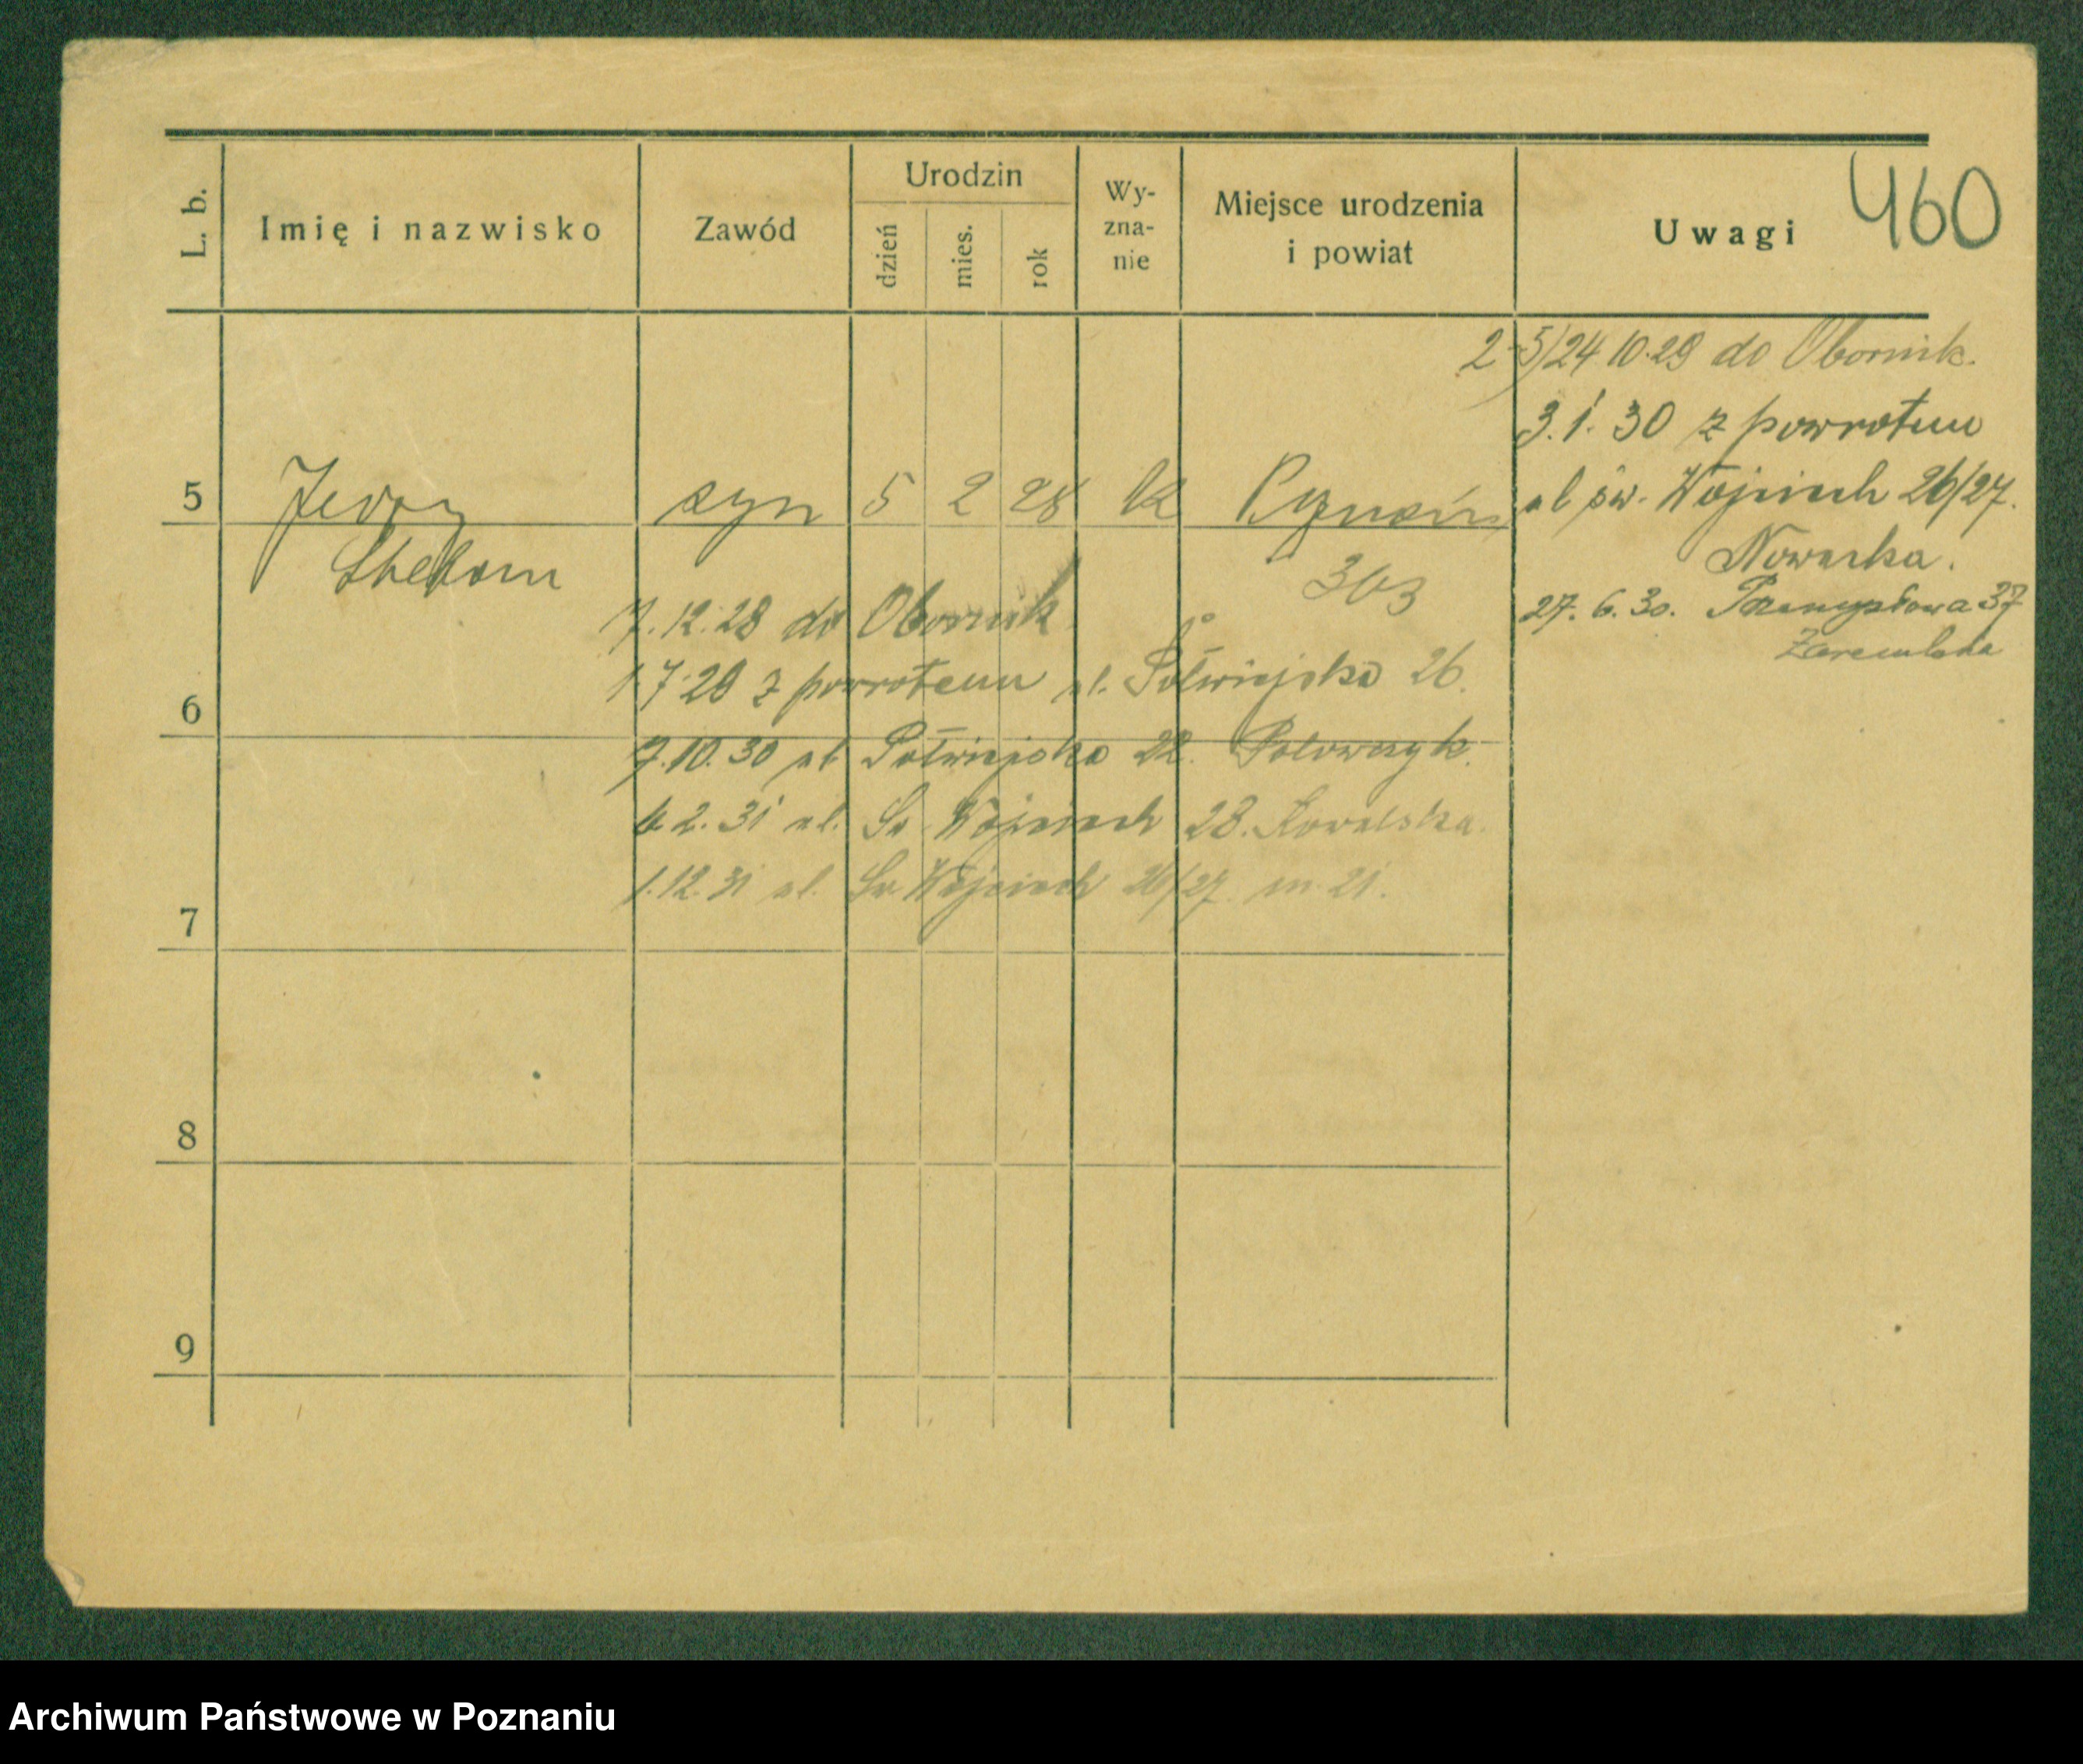 460
L. b.
Imię i nazwisko
Zawód
Urodzin
dzień
mies.
rok
Wy-
zna-
nie
Miejsce urodzenia
i powiat
Uwagi
2-5/24.10.29 do Obornik.
3.1.30 z powrotem
ul św. Wojciech 26/27.
Nowacka.
27.6.30. Przemysłowa 37
Zaremba
5 Jerzy syn 5 2 28 k Poznań
303
7.12.28 do Obornik
1.7.29 z powrotem ul. Półwiejska 26.
6
7.10.30 ul Półwiejska 22.
6.2.31 ul. Św. Wojciech 28. Kowalska.
1.12.31 ul. Św. Wojciech 26/27. m. 21.
7
8
9
Archiwum Państwowe w Poznaniu